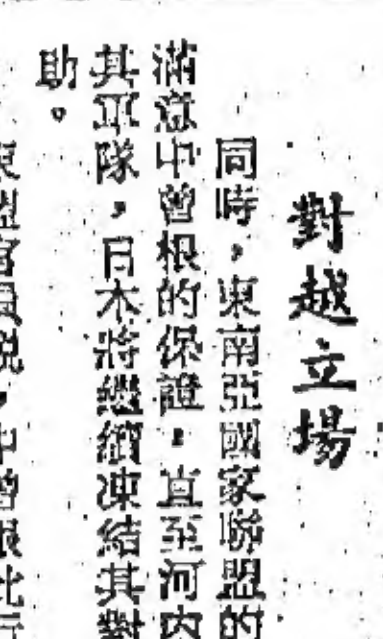 對越立場
同時，東南亞國家聯盟的
滿意中曾根的保證，直至河內
其軍隊，日本將繼續凍結其對
助。
東盟官員說，中曾根此行